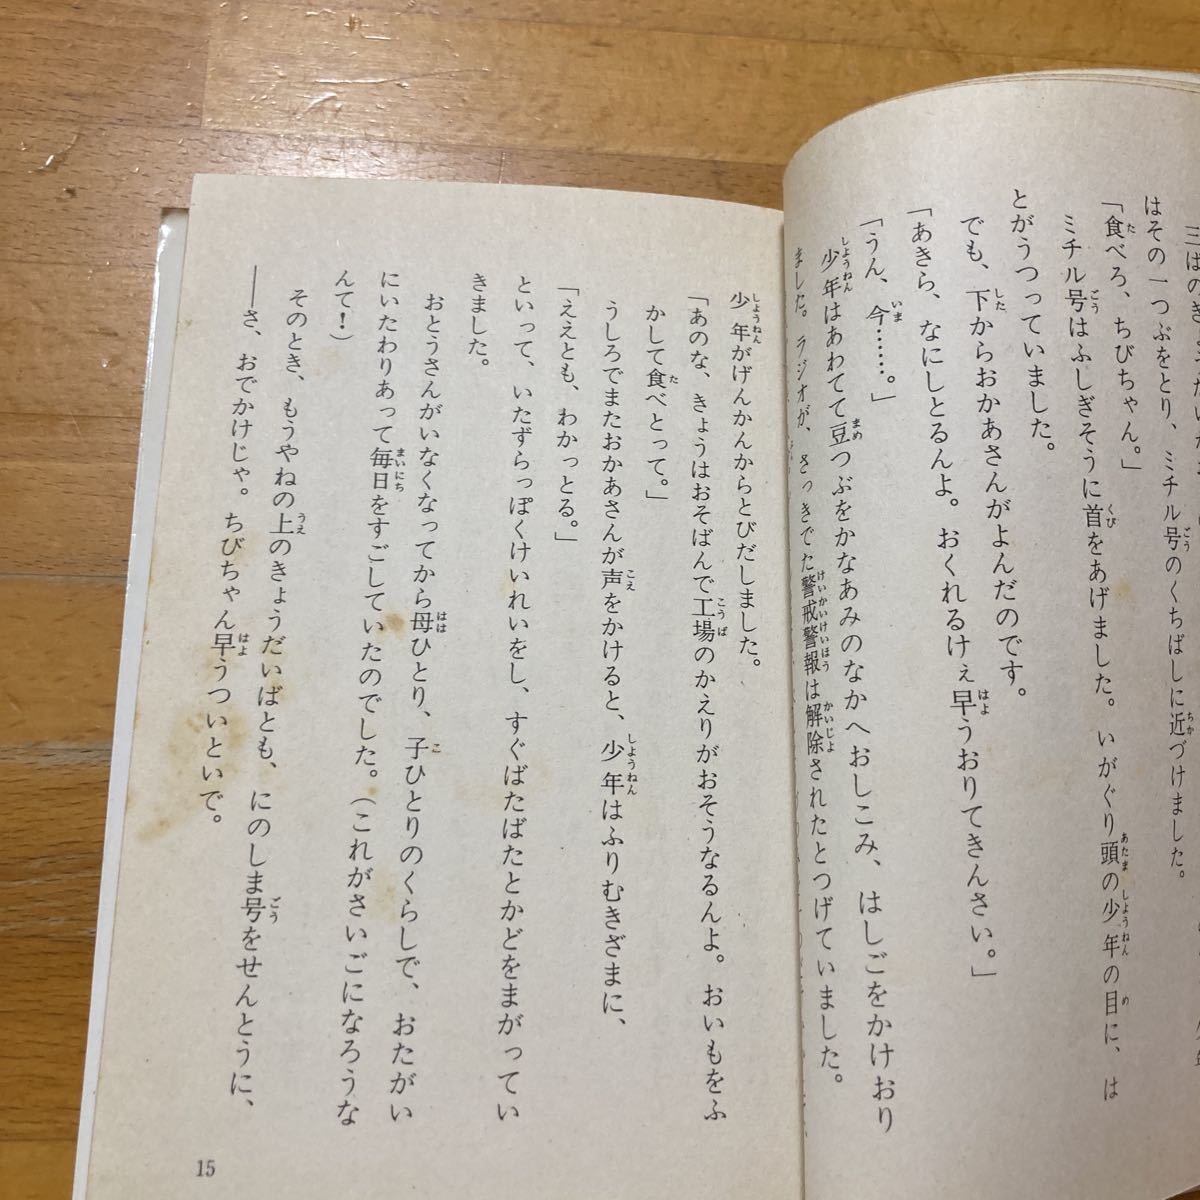 三ばのき
はその一つぶをとり、ミチル号のくちばしに近づけました。
「食べろ、ちびちゃん。」
ミチル号はふしぎそうに首をあげました。いがぐり頭の少年の目に、は
とがうつっていました。
でも、下からおかあさんがよんだのです。
「あきら、なにしとるんよ。おくれるけぇ早うおりてきんさい。」
「うん、今……。」
少年はあわてて豆つぶをかなあみのなかへおしこみ、はしごをかけおり
ました。ラジオが、さっきでた警戒警報は解除されたとつげていました。
少年がげんかんからとびだしました。
「あのな、きょうはおそばんで工場のかえりがおそうなるんよ。おいもをふ
かして食べとって。」
うしろでまたおかあさんが声をかけると、少年はふりむきざまに、
「ええとも、わかっとる。」
といって、いたずらっぽくけいれいをし、すぐばたばたとかどをまがってい
きました。
おとうさんがいなくなってから母ひとり、子ひとりのくらしで、おたがい
にいたわりあって毎日をすごしていたのでした。(これがさいごになろうな
んて!)
そのとき、もうやねの上のきょうだいばとも、にのしま号をせんとうに、
――さ、おでかけじゃ。ちびちゃん早うついといで。
15